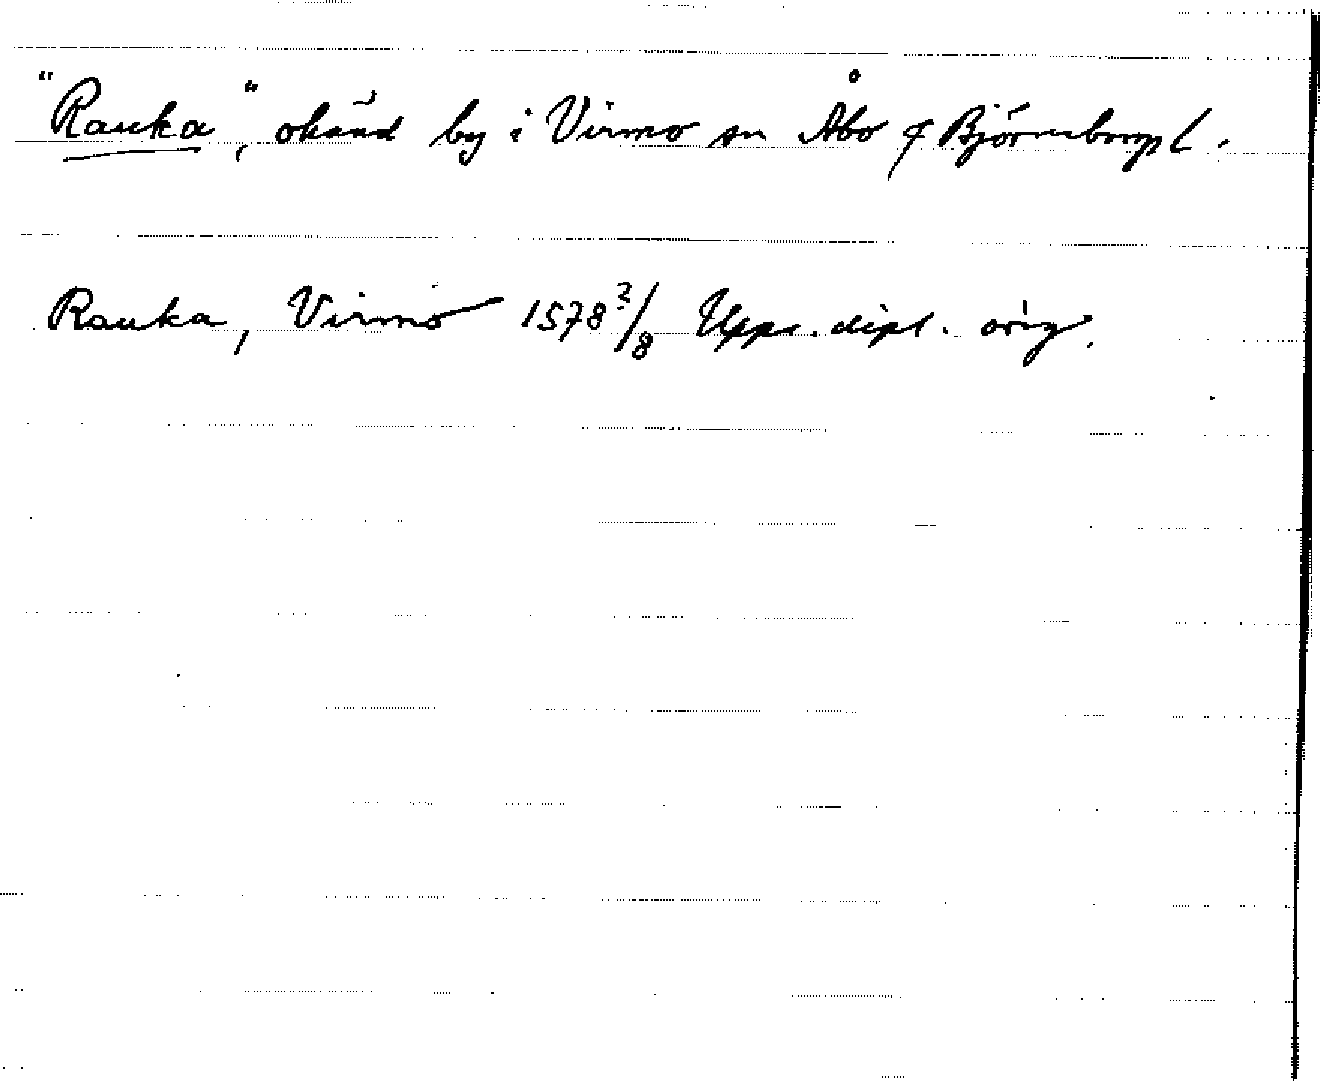 "Rauka", okänd by i Virmo sn Åbo & Björneborgs l.
Rauka, Virmo 1578 2/8 Upps. dipl. orig.